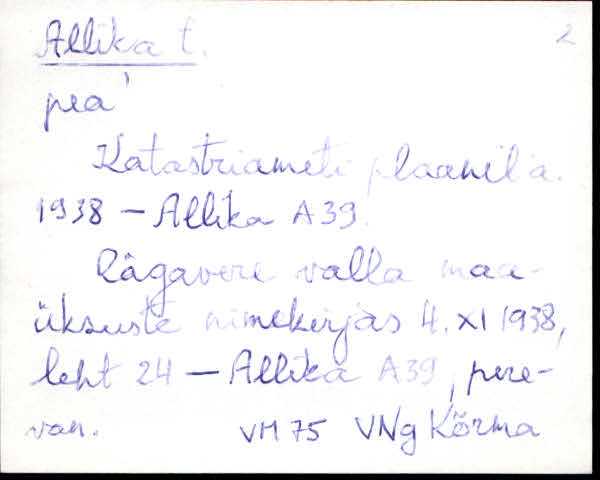 Allika t. 2
pea'
Katastriameti plaanil a.
1938 – Allika A39.
Rägavere valla maa-
üksuste nimekirjas 4. XI 1938,
leht 24 – Allika A39, pere-
van. VM 75 VNg Kõrma